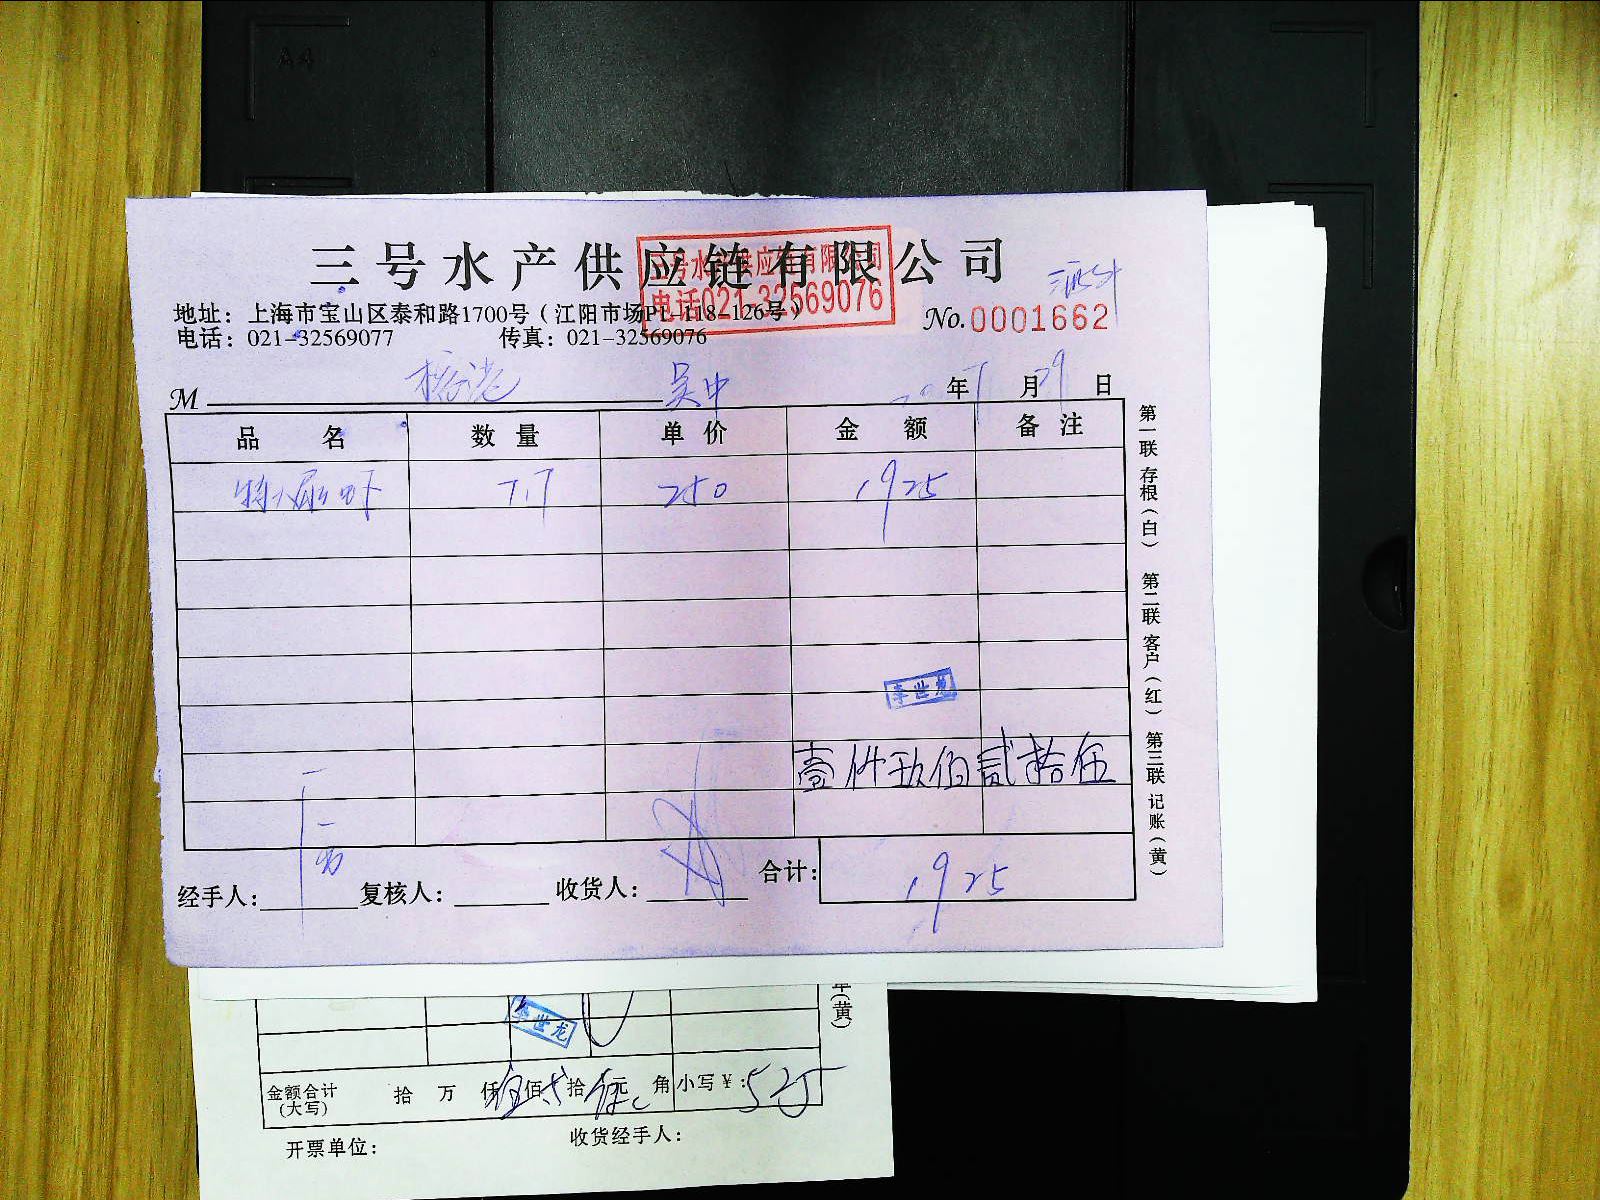 A4
三号水产供应链有限公司
三号水产供应链有限公司
电话021-32569076
地址：上海市宝山区泰和路1700号（江阳市场P1-118-126号）
No.0001662
电话：021-32569077 传真：021-32569076
M 吴中 年7月29日
品名 数量 单价 金额 备注
7.7 250 1925
李世龙
壹仟玖佰贰拾伍
合计： 1925
经手人： 复核人： 收货人：
第一联 存根（白） 第二联 客户（红） 第三联 记账（黄）
（黄）
李世龙
金额合计（大写） 拾 万 仟伍佰贰拾伍元 角 小写￥：525
开票单位： 收货经手人：